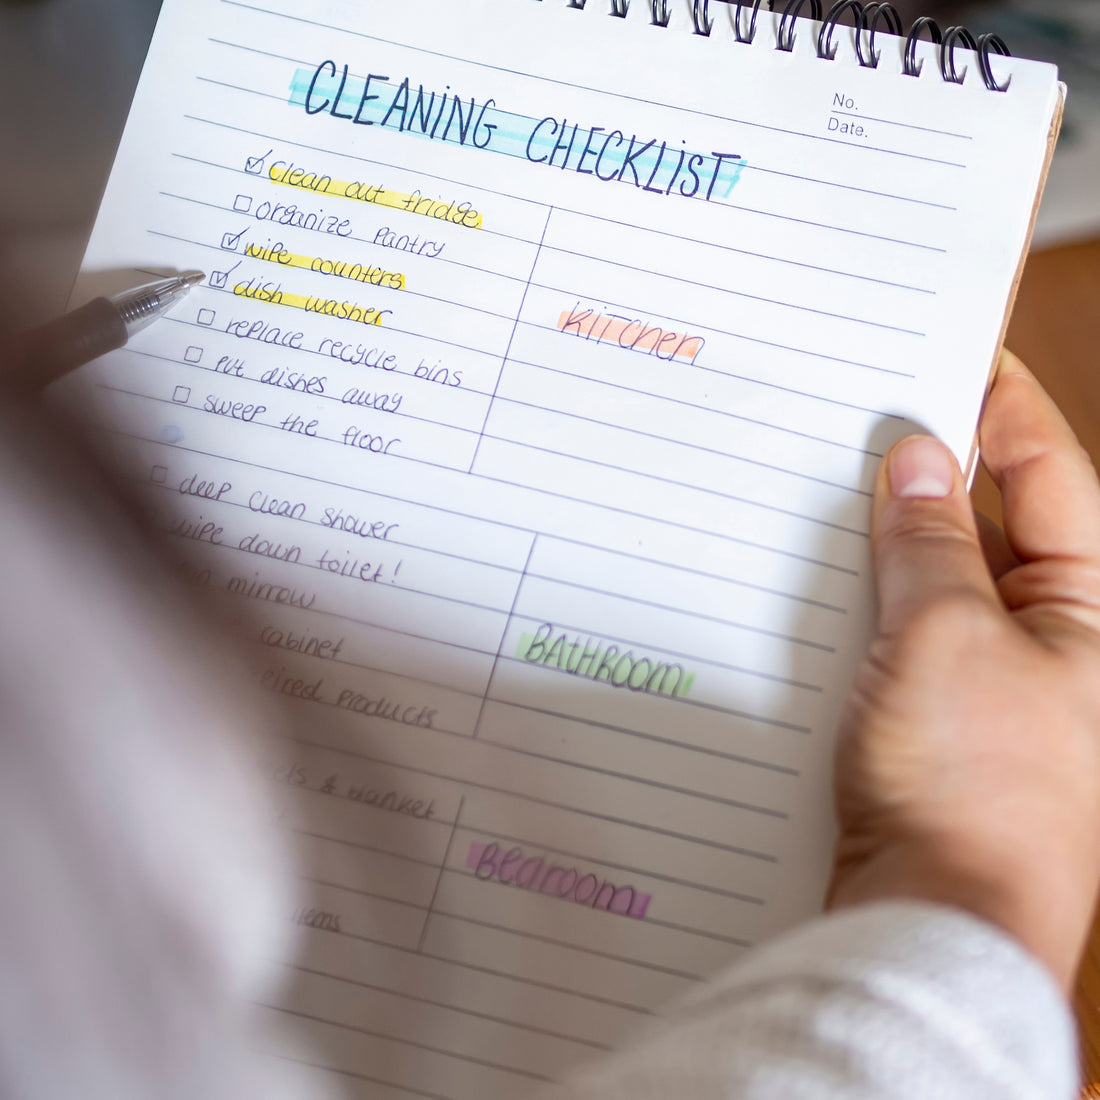 No.
Date.
CLEANING CHECKLIST
clean out fridge
organize pantry
wipe counters
dish washer
replace recycle bins
put dishes away
sweep the floor
KITCHEN
deep clean shower
wipe down toilet!
mirrow
cabinet
products
BATHROOM
& blanket
Bedroom
items